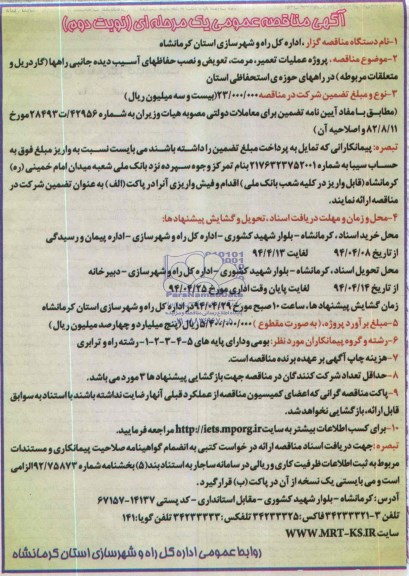 آگهی مناقصه عمومی یک مرحله ای (نوبت دوم)
۱-نام دستگاه مناقصه گزار ، اداره کل راه و شهرسازی استان کرمانشاه
۲-موضوع مناقصه . پروژه عملیات تعمیر، مرمت، تعویض و نصب حفاظهای آسیب دیده جانبی راهها (گاردریل و
متعلقات مربوطه ) در راههای حوزه ی استحفاظی استان
۳-نوع و مبلغ تضمین شرکت در مناقصه ۲۳/۰۰۰/۰۰۰ (بیست و سه میلیون ریال)
(مطابق با مفاد آیین نامه تضمین برای معاملات دولتی مصوبه هیات وزیران به شماره ۴۲۹۵۶/ت۲۸۴۹۳ مورخ
۸۲/۸/۱۱ و اصلاحیه آن )
تبصره: پیمانکارانی که تمایل به پرداخت مبلغ تضمین را داشته باشند می بایست نسبت به واریز مبلغ فوق به
حساب سیبا به شماره ۲۱۷۶۴۲۳۷۵۲۰۰۱ بنام تمرکز وجوه سپرده نزد بانک ملی شعبه میدان امام خمینی (ره)
کرمانشاه (قابل واریز در کلیه شعب بانک ملی ) اقدام و فیش واریزی آنرا در پاکت (الف) به عنوان تضمین شرکت در
مناقصه ارائه نمایند.
۴-محل و زمان و مهلت دریافت اسناد ، تحویل و گشایش پیشنهادها:
محل خرید اسناد، کرمانشاه - بلوار شهید کشوری - اداره کل راه و شهرسازی - اداره پیمان و رسیدگی
از تاریخ ۹۴/۰۴/۰۸ لغایت ۹۴/۴/۱۳
محل تحویل اسناد، کرمانشاه - بلوار شهید کشوری - اداره کل راه و شهرسازی - دبیرخانه
از تاریخ ۹۴/۰۴/۱۴ لغایت پایان وقت اداری مورخ ۹۴/۰۴/۲۵
زمان گشایش پیشنهادها، ساعت ۱۰ صبح مورخ ۹۴/۰۴/۲۹ در اداره کل راه و شهرسازی استان کرمانشاه
۵-مبلغ برآورد پروژه، (به صورت مقطوع ) ۵/۴۰۰/۰۰۰/۰۰۰ ریال (پنج میلیارد و چهارصد میلیون ریال)
۶-رشته و گروه پیمانکاران مورد نظر: بومی و دارای پایه های ۵-۴-۳-۲-۱- رشته راه و ترابری
۷-هزینه چاپ آگهی بر عهده برنده مناقصه است.
۸-حداقل تعداد شرکت کنندگان در مناقصه جهت بازگشایی پیشنهادها ۳ مورد می باشد.
۹-پاکت مناقصه گرانی که اعضای کمیسیون مناقصه از عملکرد قبلی آنها رضایت نداشته باشند با استناد به سوابق
قابل ارائه، بازگشایی نخواهد شد.
۱۰-برای کسب اطلاعات بیشتر به سایت http://iets.mporg.ir مراجعه فرمایید.
تبصره: جهت دریافت اسناد مناقصه ارائه در خواست کتبی به انضمام گواهینامه صلاحیت پیمانکاری و مستندات
مربوط به ثبت اطلاعات ظرفیت کاری و ریالی در سامانه ساجار به استناد بند (۵) بخشنامه شماره ۹۲/۷۵۸۷۳ الزامی
است و می بایستی یک نسخه از آن در پاکت (ب) قرار گیرد.
آدرس: کرمانشاه - بلوار شهید کشوری - مقابل استانداری - کد پستی ۱۴۱۳۷-۶۷۱۵۷
تلفن ۳-۳۴۲۳۳۳۲۱ فاکس: ۳۴۲۳۳۳۲۵ تلفکس: ۳۴۲۳۳۳۳۳ تلفن گویا: ۱۴۱
سایت WWW.MRT-KS.IR
روابط عمومی اداره کل راه و شهرسازی استان کرمانشاه